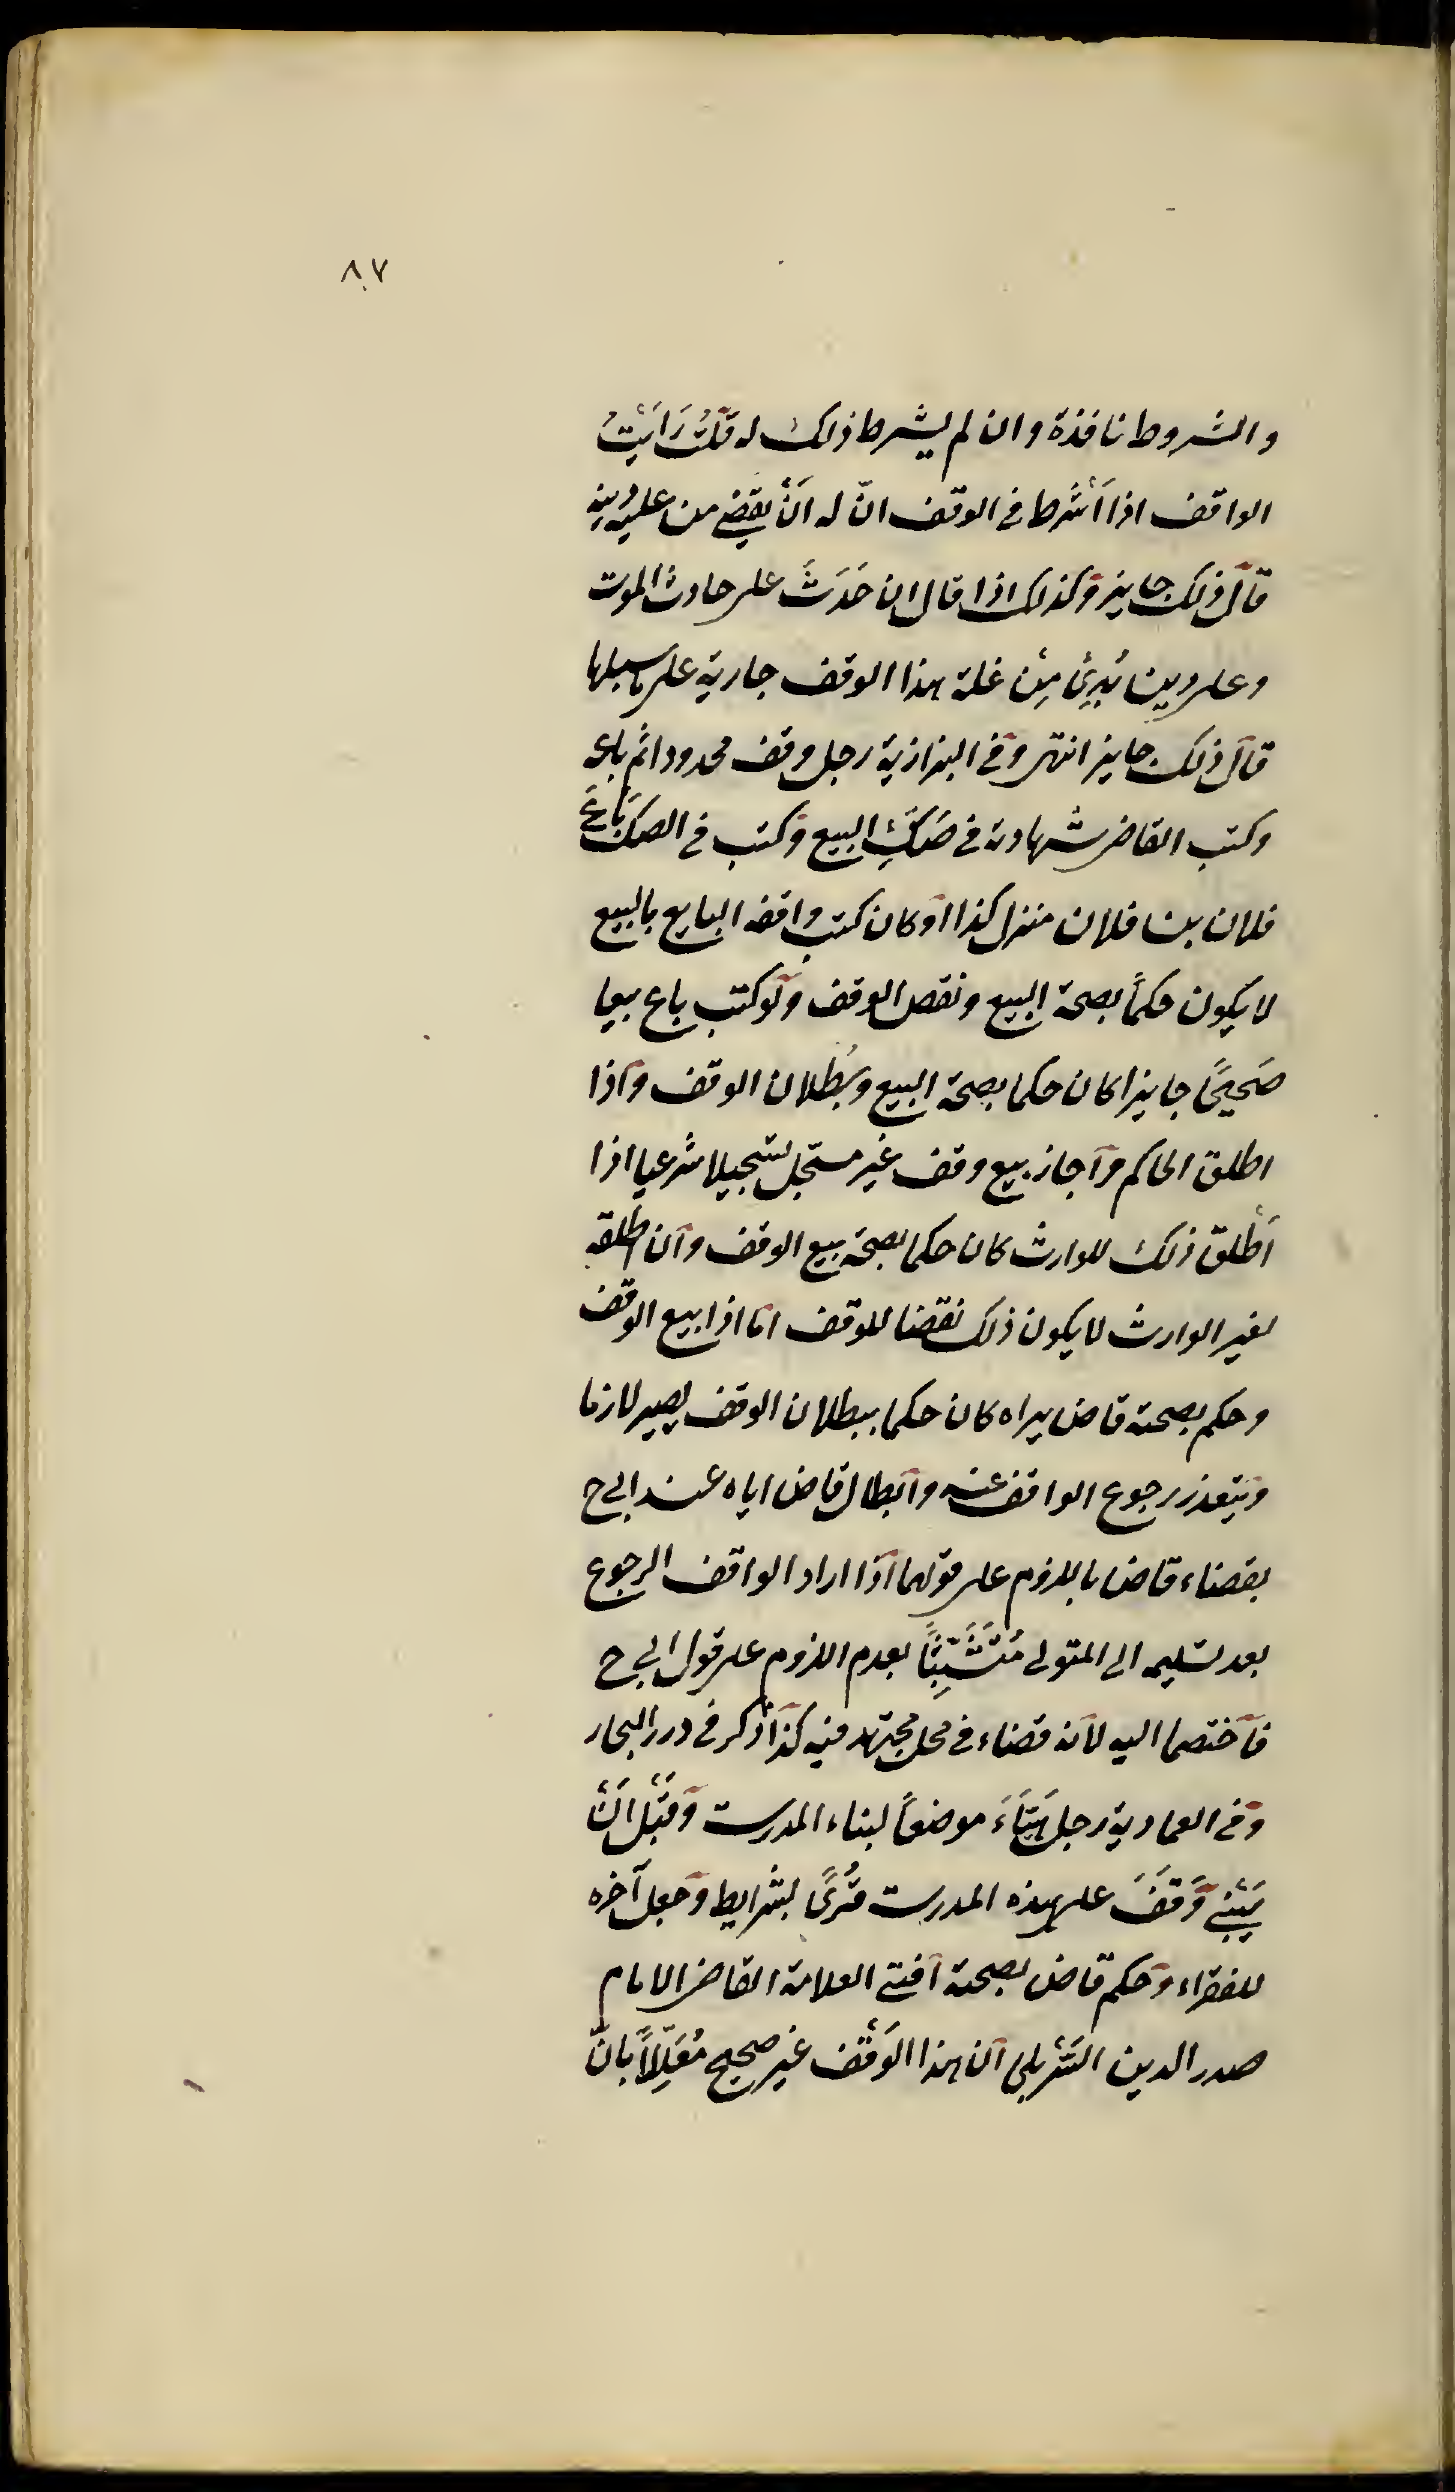 ٨٧
والشروط نافذة وان لم يشرط ذلك له قلتُ رَاَيْتَ
الواقف اذا اَشْرط فى الوقف انّ له اَنْ يقضى من غلته دينه
قال ذلك جايز وكذلك اذا قال ان حَدَثَ على حادث الموت
وعلى دين بُدِئ مِنْ غلة هذا الوقف جارية على ما سبلها
قال ذلك جايز انتهى وفى البزازية رجل وقف محدودا ثم باعه
وكتب القاضى شهادته فى صَكِّ البيع وكتب فى الصكّ بَاعَ
فلان بن فلان منزل كذا او كان كتب واقفه البايع بالبيع
لا يكون حكمًا بصحة البيع ونقض الوقف ولو كتب باع بيعا
صَحيحًا جايزا كان حكما بصحة البيع وبُطلان الوقف واذا
اطلق الحاكم واجاز بيع وقف غير مسجل تسجيلا شرعيا اذا
اَطْلق ذلك للوارث كان حكما بصحة بيع الوقف وان اطلقه
لغير الوارث لا يكون ذلك نقضا للوقف اما اذا بيع الوقف
وحكم بصحته قاض يراه كان حكما ببطلان الوقف يصير لازما
ويتعذر رجوع الواقف عنه وابطال قاض اياه عند ابى ح
بقضاء قاض باللزوم على قولهما اذا اراد الواقف الرجوع
بعد تسليمه الى المتولى مُتَشَبِّثًا بعدم اللزوم على قول ابى ح
فاختصما اليه لانه قضاء فى محل مجتهد فيه كذا ذكر فى درر البحار
وفى العمادية رجل هَيَّاَءَ موضعًا لبناء المدرسة وقَبْل اَنْ
يَبْنِى وَقَفَ على هذه المدرسة قُرًى بشرايط وجعل آخره
للفقراء وحكم قاض بصحته افتى العلامة القاضى الامام
صدر الدين ان هذا الوَقْف غير صحيح مُعَلِّلاً بانّ